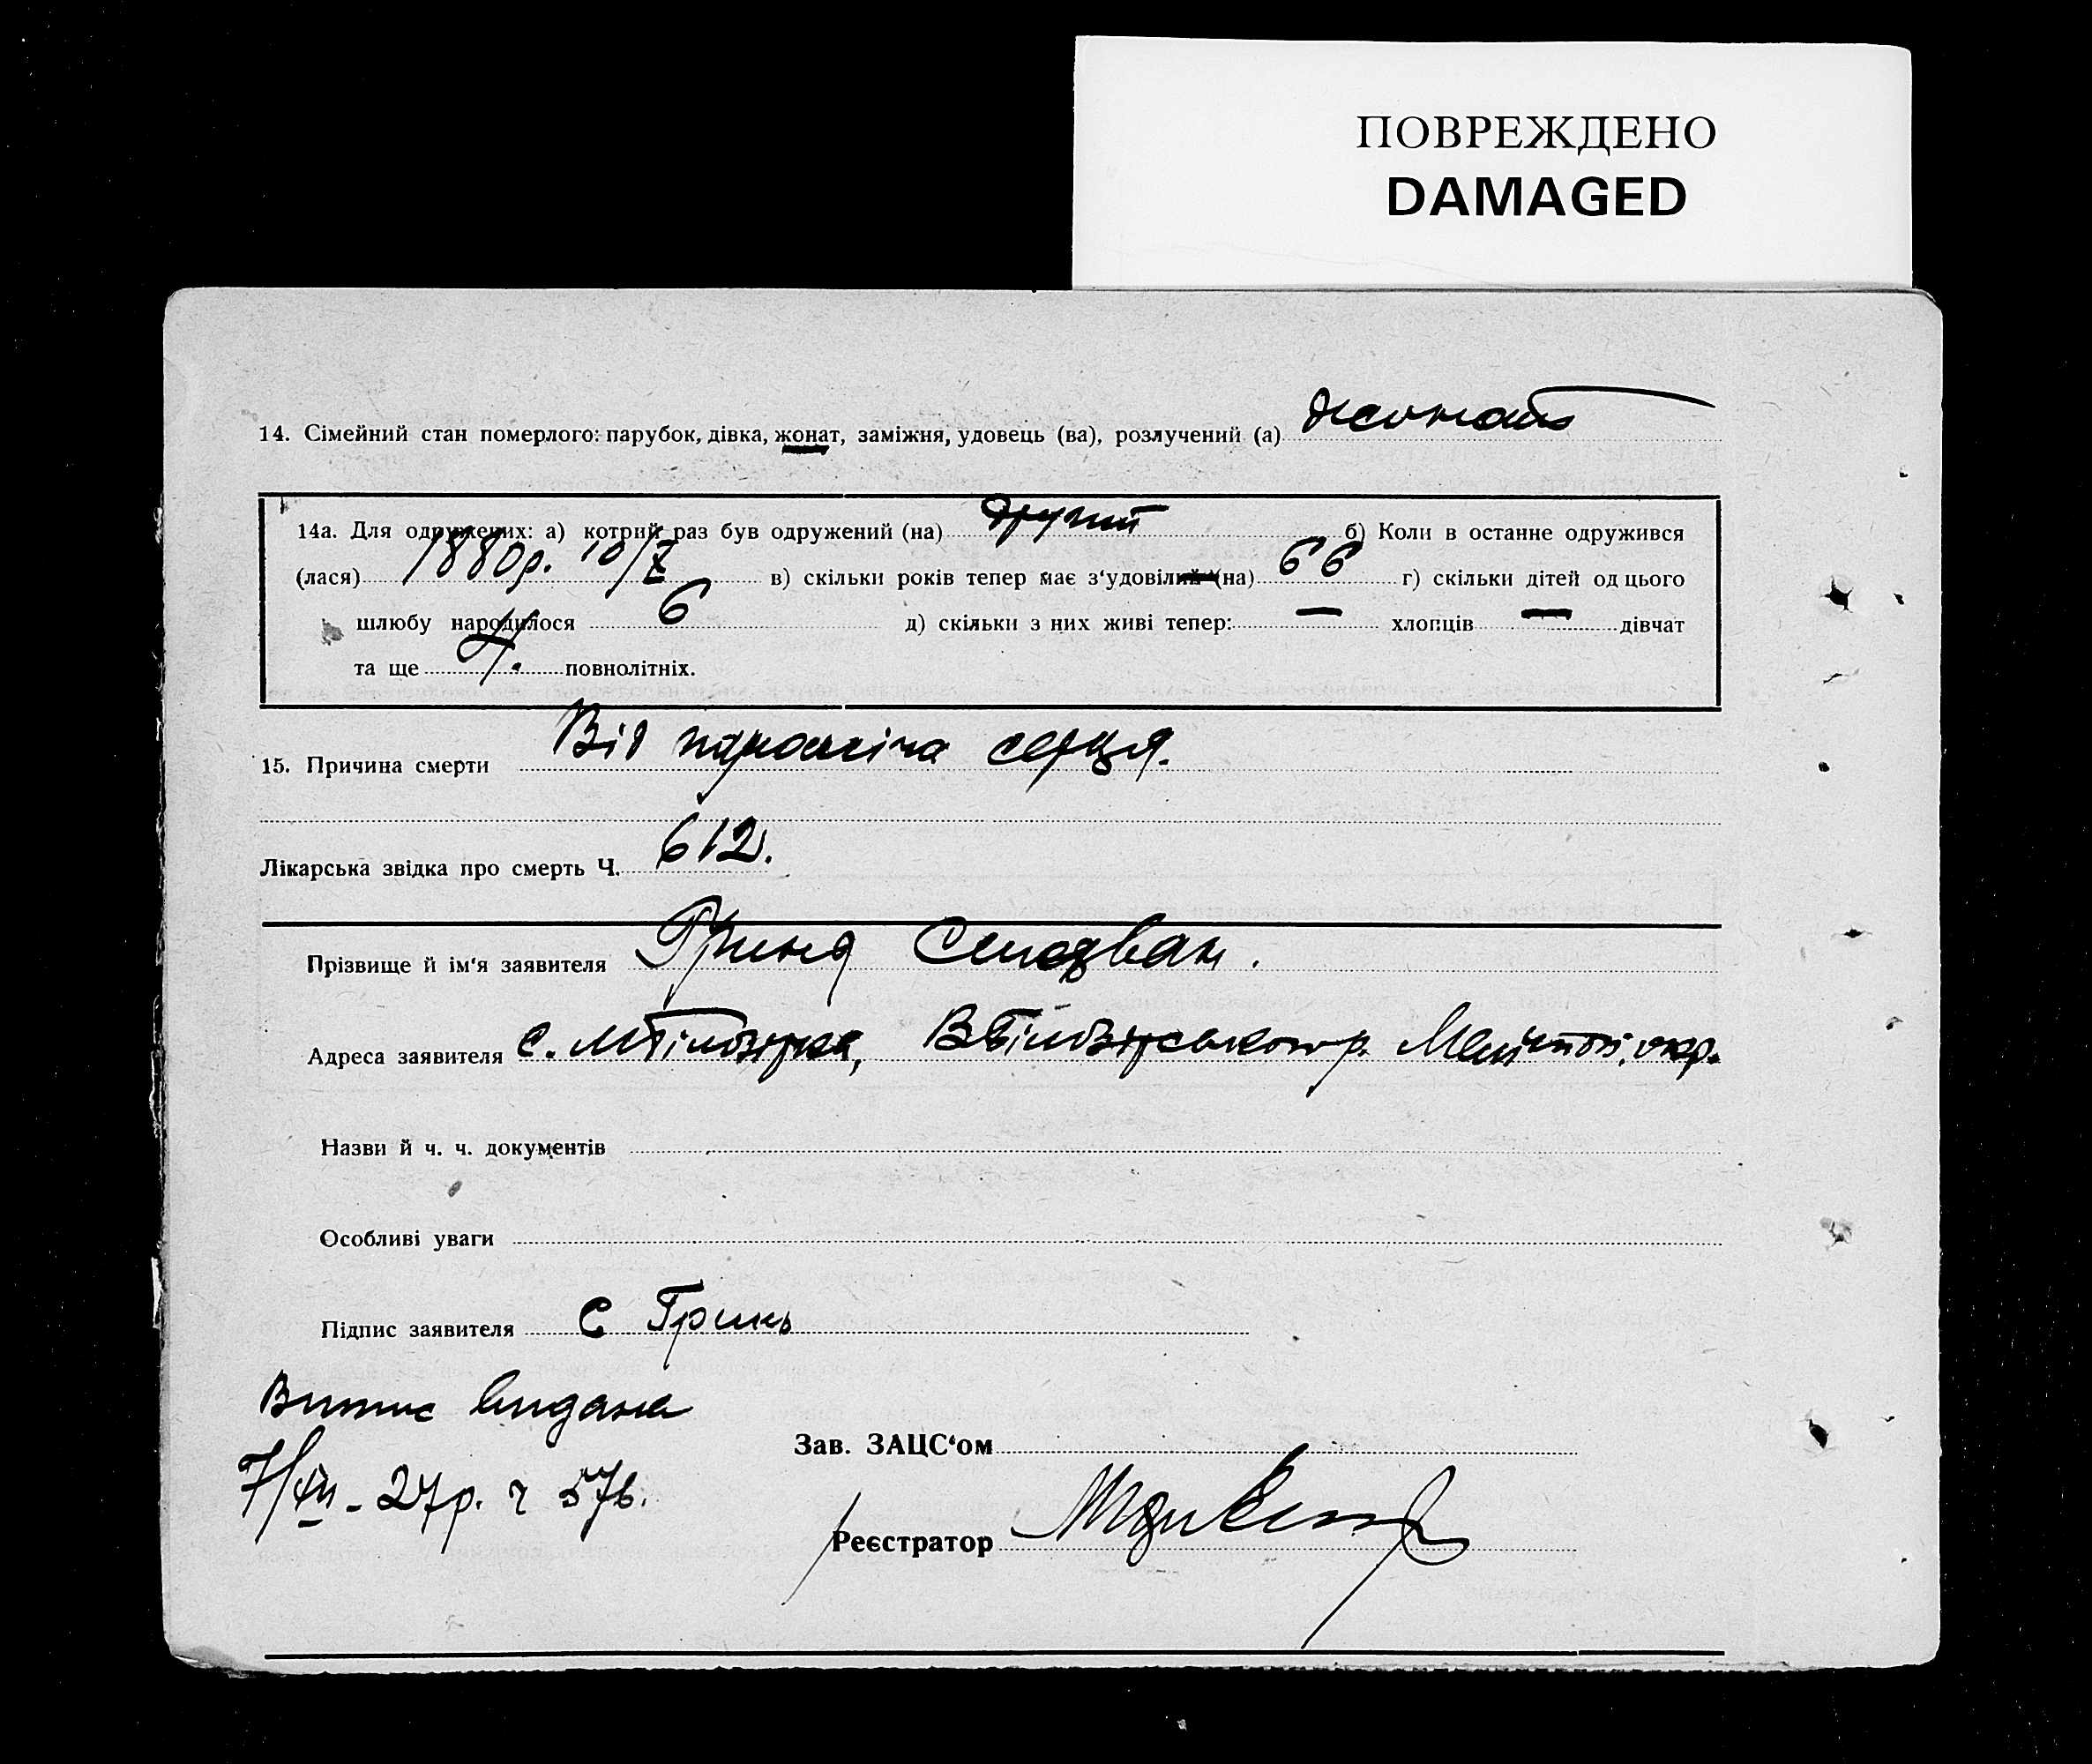 ПОВРЕЖДЕНО
DAMAGED
14. Сімейний стан померлого: парубок, дівка, жонат, заміжня, удовець (ва), розлучений (а) жонат
14а. Для одружених: а) котрий раз був одружений (на) другий б) Коли в останне одружився
(лася) 1880р. 10/Z в) скільки років тепер має з'удовілий (на) 66 г) скільки дітей од цього
шлюбу народилося 6 д) скільки з них живі тепер: — хлопців — дівчат
та ще 4. повнолітніх.
15. Причина смерти Від параліча серця.
Лікарська звідка про смерть Ч. 612.
Прізвище й ім'я заявителя Гриня
Адреса заявителя с. М Білозірка, В Білозірського р. Меліtоп. окр.
Назви й ч. ч. документів
Особливі уваги
Підпис заявителя С Гринь
Випис видана
7/XII - 27р. ч 576.
Зав. ЗАЦС'ом
Реєстратор